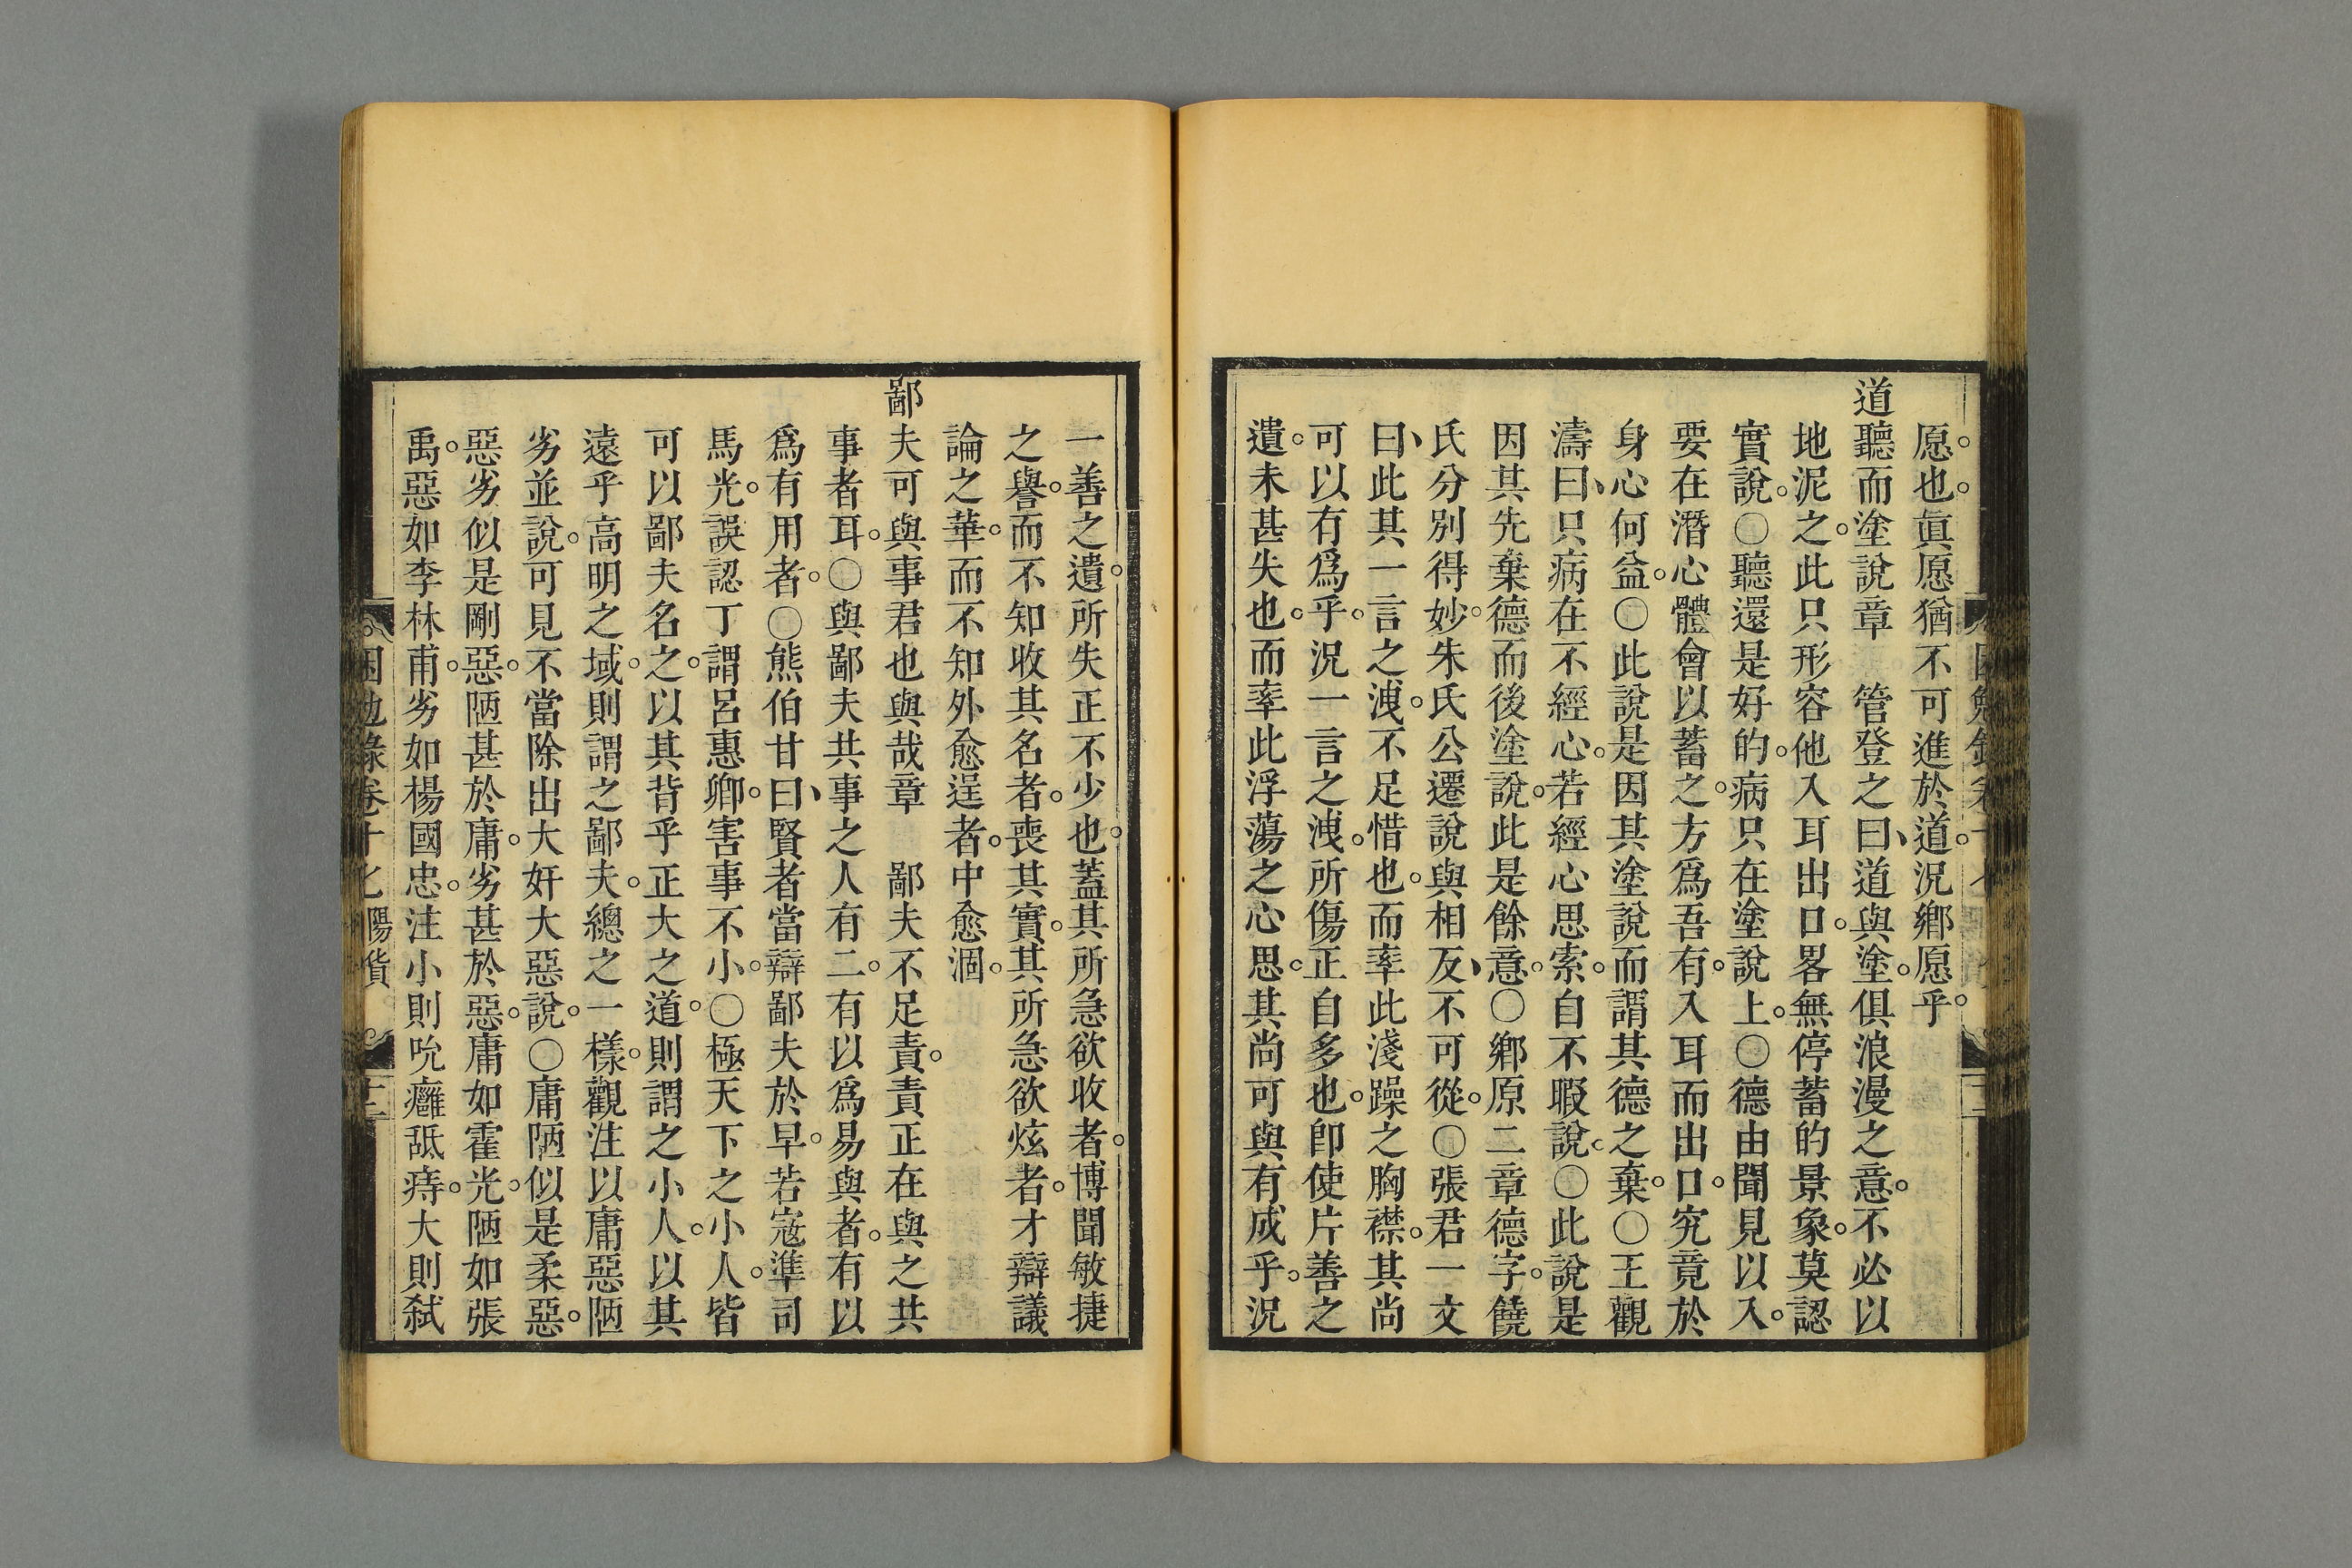 愿。也。眞愿猶不可進於道。況鄉愿乎。
道聽而塗說章　管登之曰、道與塗。俱浪漫之意。不必以
地泥之。此只形容他入耳出口。畧無停蓄的景象。莫認
實說。○聽還是好的。病只在塗說上。○德由聞見以入。
要在潛心體會以蓄之。方爲吾有。入耳而出口。究竟於
身心何益。○此說是因其塗說而謂其德之棄。○王觀
濤曰、只病在不經心。若經心思索。自不暇說。○此說是
因其先棄德而後塗說。此是餘意。○鄉原二章德字。饒
氏分別得妙。朱氏公遷說與相反、不可從。○張君一文
曰、此其一言之洩。不足惜也。而率此淺躁之胸襟。其尚
可以有爲乎。況一言之洩。所傷正自多也。卽使片善之
遺。未甚失也。而率此浮蕩之心思。其尚可與有成乎。況
一善之遺。所失正不少也。蓋其所急欲收者。博聞敏捷
之譽。而不知收其名者。喪其實。其所急欲炫者。才辯議
論之華。而不知外愈逞者。中愈涸。
鄙夫可與事君也與哉章　鄙夫不足責。責正在與之共
事者耳。○與鄙夫共事之人有二。有以爲易與者。有以
爲有用者。○熊伯甘曰、賢者當辯鄙夫於早。若寇準司
馬光。誤認丁謂呂惠卿。害事不小。○極天下之小人。皆
可以鄙夫名之。以其背乎正大之道。則謂之小人。以其
遠乎高明之域。則謂之鄙夫。總之一樣。觀注以庸惡陋
劣並說。可見不當除出大奸大惡說。○庸陋似是柔惡。
惡劣似是剛惡。陋甚於庸。劣甚於惡。庸如霍光。陋如張
禹。惡如李林甫。劣如楊國忠。注小則吮癰舐痔。大則弒
困勉錄卷十七陽貨　十二